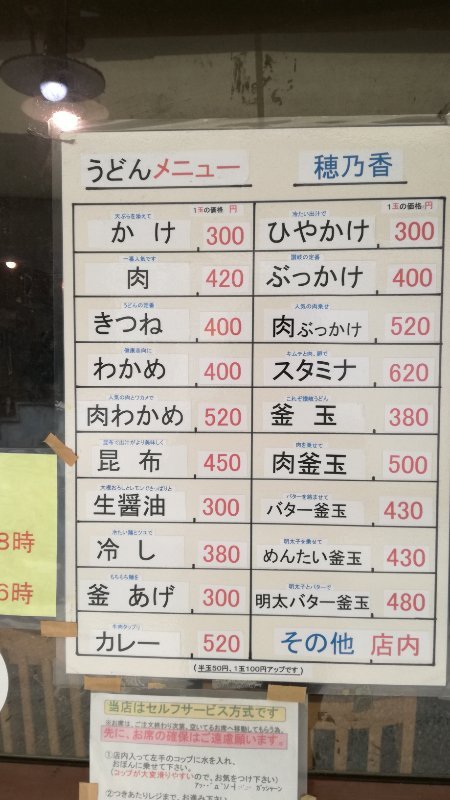 うどんメニュー
穂乃香
1玉の価格 円
天ぷらを添えて
かけ 300
一番人気です
肉 420
うどんの定番
きつね 400
健康志向に
わかめ 400
人気の肉とワカメで
肉わかめ 520
昆布で出汁がより美味しく
昆布 450
大根おろしとレモンでさっぱりと
生醤油 300
冷たい麺とツユで
冷し 380
もちもち麺を
釜あげ 300
牛肉タップリ
カレー 520
1玉の価格 円
冷たい出汁で
ひやかけ 300
讃岐の定番
ぶっかけ 400
人気の肉乗せ
肉ぶっかけ 520
キムチと肉、卵で
スタミナ 620
これぞ讃岐うどん
釜玉 380
肉を乗せて
肉釜玉 500
バターを絡ませて
バター釜玉 430
明太子を乗せて
めんたい釜玉 430
明太子とバターで
明太バター釜玉 480
その他 店内
(半玉50円、1玉100円アップです)
8時
6時
当店はセルフサービス方式です
※お席は、ご注文終わり次第、空いてるお席へ移動してもらう為、
先に、お席の確保はご遠慮願います。
①店内入って左手のコップに水を入れ、
おぼんに乗せて下さい。
(コップが大変滑りやすいので、お気をつけ下さい)
②つきあたりレジまで、お進み下さい。